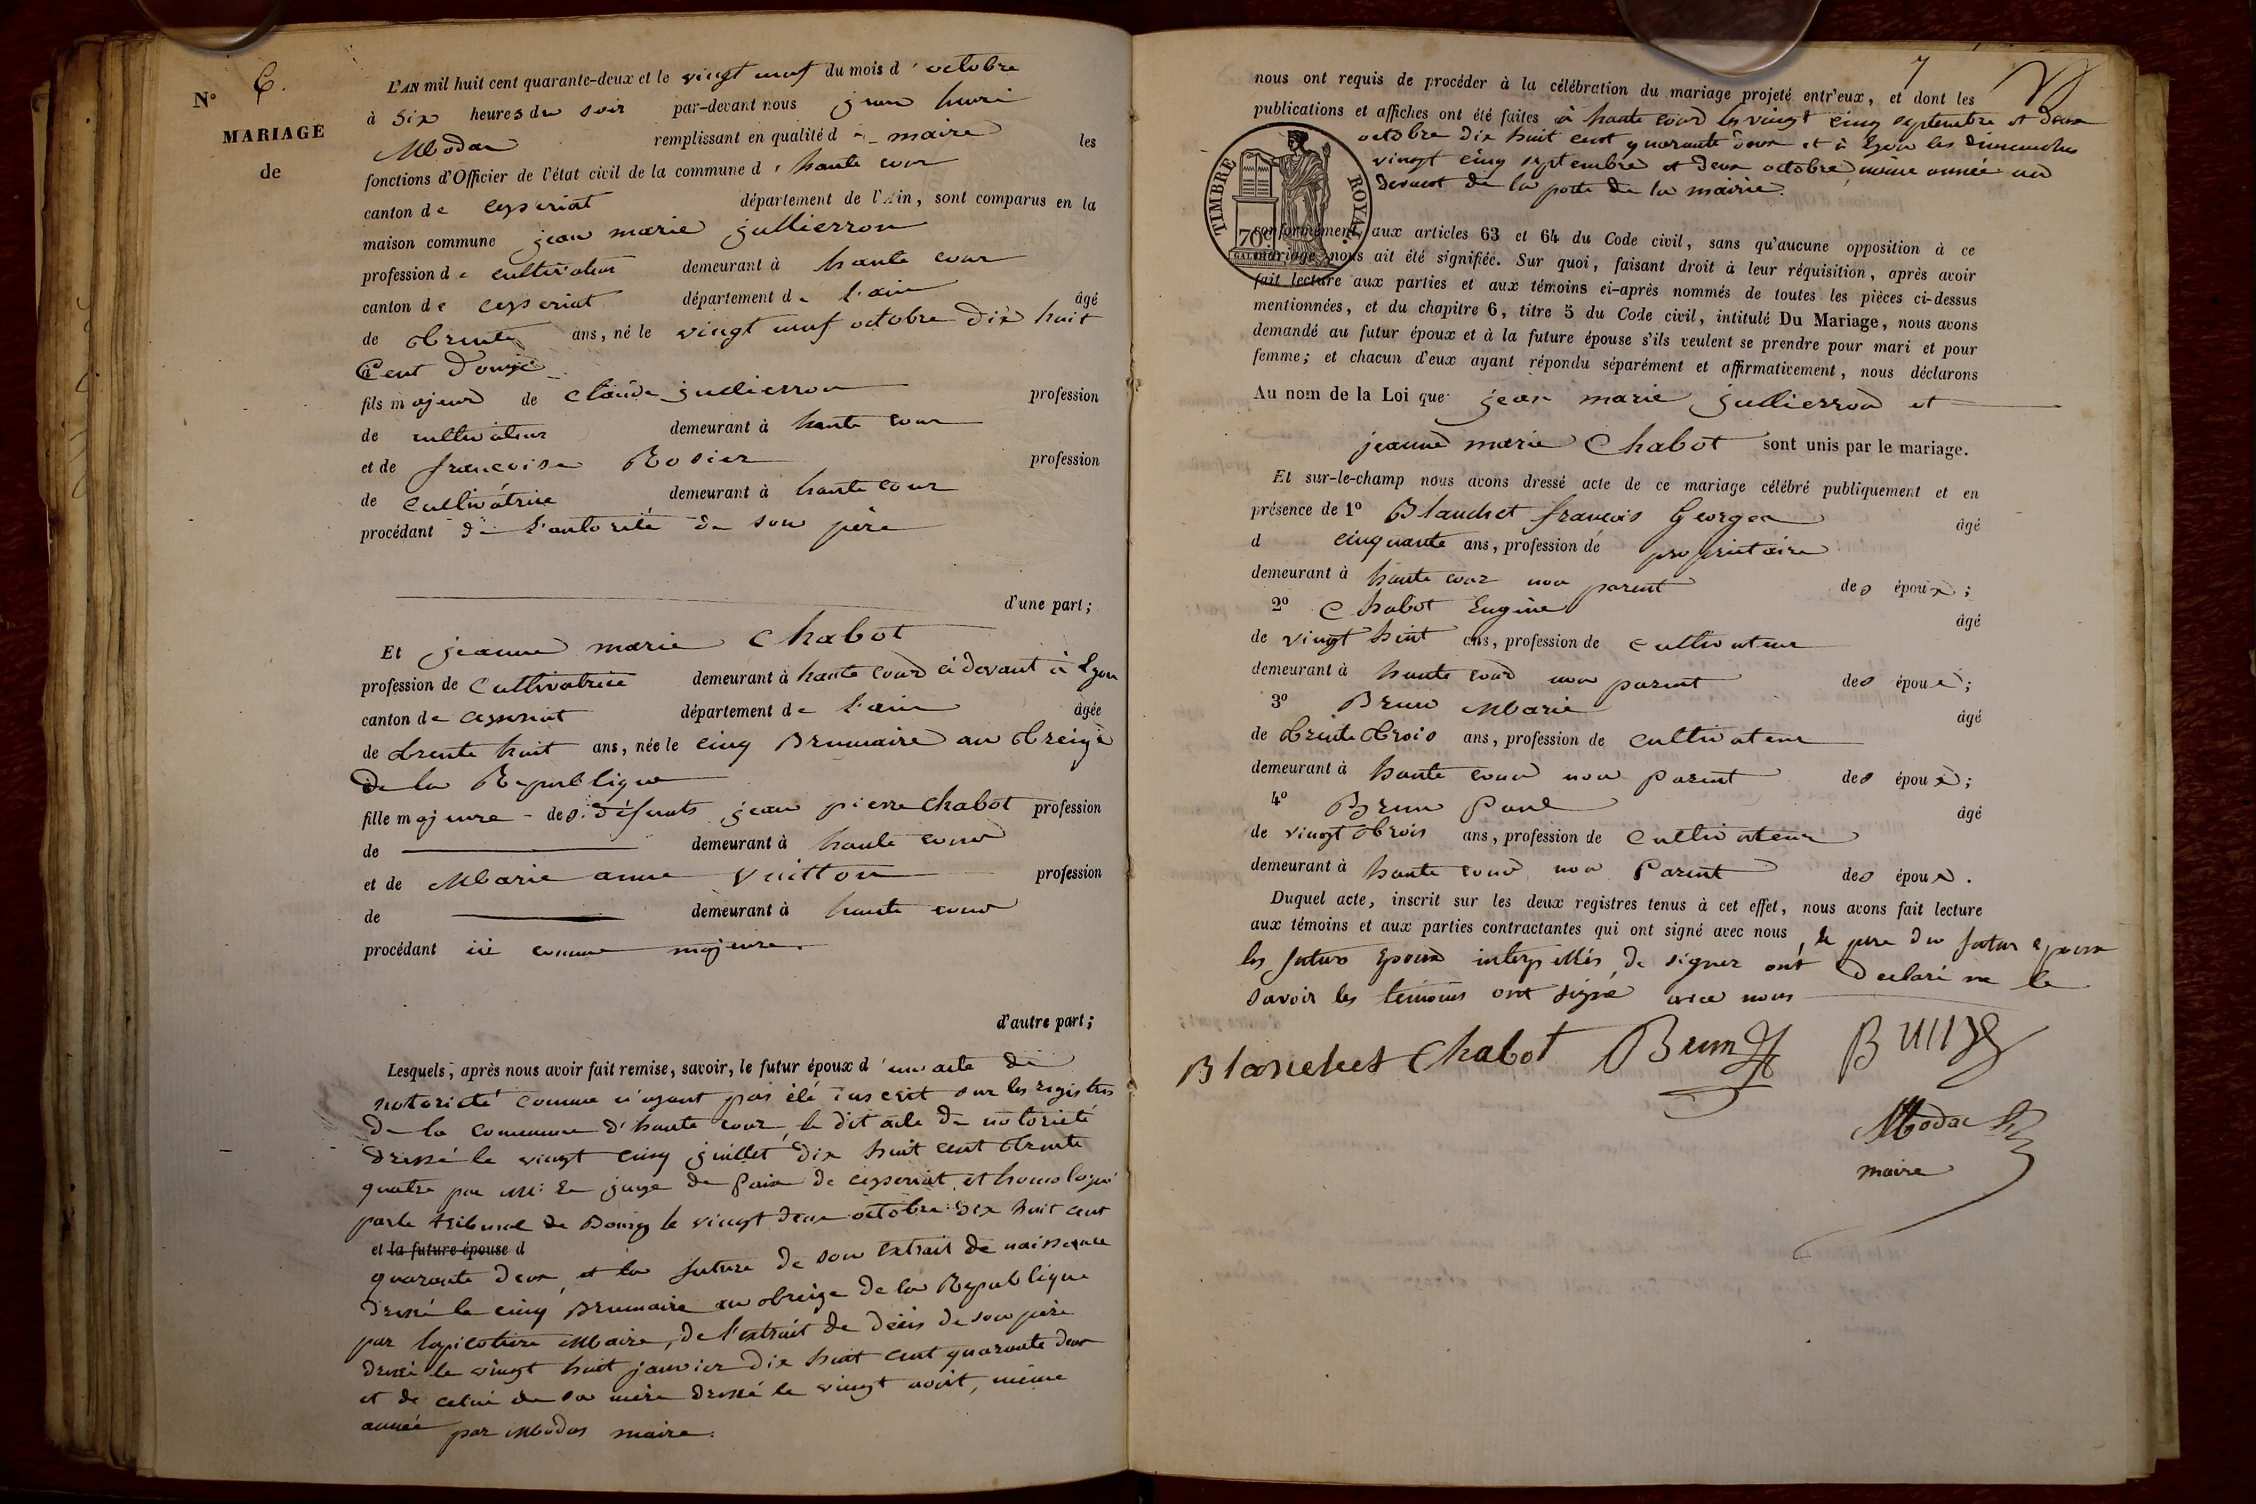 N° 6.
MARIAGE
de
L'AN mil huit cent quarante-deux et le vingt neuf du mois d'octobre
à Six heures du soir par-devant nous jean henri
Modas remplissant en qualité de maire les
fonctions d'Officier de l'état civil de la commune d'haute cour
canton de ceyseriat département de l'Ain, sont comparus en la
maison commune jean marie jullierron
profession de cultivateur demeurant à haute cour
canton de ceyseriat département de l'ain âgé
de trente ans, né le vingt neuf octobre dix huit
Cent Douze
fils majeur de Claude jullierron profession
de cultivateur demeurant à haute cour
et de françoise Rosier profession
de cultivatrice demeurant à haute cour
procédant de l'autorité de son père
d'une part;
Et jeanne marie Chabot
profession de Cultivatrice demeurant à haute cour ci devant à Lyon
canton de ceyseriat département de l'ain âgée
de trente huit ans, née le cinq Brumaire an treize
de la Republique
fille majeure des défunts jean pierre Chabot profession
de demeurant à haute cour
et de Marie anne Vuitton profession
de demeurant à haute cour
procédant ici comme majeure.
d'autre part;
Lesquels, après nous avoir fait remise, savoir, le futur époux d'un acte de
notoriété comme n'ayant pas été inscrit sur les registres
de la commune d'haute cour, le dit acte de notoriété
dressé le vingt cinq juillet dix huit cent trente
quatre par Mr. Le juge de Paix de ceyseriat et homologué
par le tribunal de Bourg le vingt deux octobre dix huit cent
et la future épouse d
quarante deux, et la future de son extrait de naissance
dressé le cinq Brumaire an treize de la Republique
par lapicotiere Maire, de l'extrait de décès de son père
dressé le vingt huit janvier dix huit cent quarante deux
et de celui de sa mère dressé le vingt août, même
année par Modas maire.
7
nous ont requis de procéder à la célébration du mariage projeté entr'eux, et dont les
publications et affiches ont été faites à haute cour les vingt cinq septembre et deux
octobre dix huit cent quarante deux et à Lyon les dimanches
vingt cinq septembre et deux octobre même année au
devant de la porte de la mairie.
TIMBRE ROYAL
70c
conformément aux articles 63 et 64 du Code civil, sans qu'aucune opposition à ce
mariage nous ait été signifiée. Sur quoi, faisant droit à leur réquisition, après avoir
fait lecture aux parties et aux témoins ci-après nommés de toutes les pièces ci-dessus
mentionnées, et du chapitre 6, titre 5 du Code civil, intitulé Du Mariage, nous avons
demandé au futur époux et à la future épouse s'ils veulent se prendre pour mari et pour
femme; et chacun d'eux ayant répondu séparément et affirmativement, nous déclarons
Au nom de la Loi que jean marie jullierron et
jeanne marie Chabot sont unis par le mariage.
Et sur-le-champ nous avons dressé acte de ce mariage célébré publiquement et en
présence de 1° Blanchet françois Georges âgé
d cinquante ans, profession de propriétaire
demeurant à haute cour non parent des époux;
2° Chabot Eugène âgé
de vingt huit ans, profession de cultivateur
demeurant à haute cour non parent des époux;
3° Brun Marie âgé
de trente trois ans, profession de cultivateur
demeurant à haute cour non Parent des époux;
4° Brun Paul âgé
de vingt trois ans, profession de Cultivateur
demeurant à haute cour non Parent des époux.
Duquel acte, inscrit sur les deux registres tenus à cet effet, nous avons fait lecture
aux témoins et aux parties contractantes qui ont signé avec nous, le pere du futur epoux
les futurs époux interpellés de signer ont declaré ne le
savoir les témoins ont signé avec nous
Blanchet Chabot Brun Brun
Modas
maire